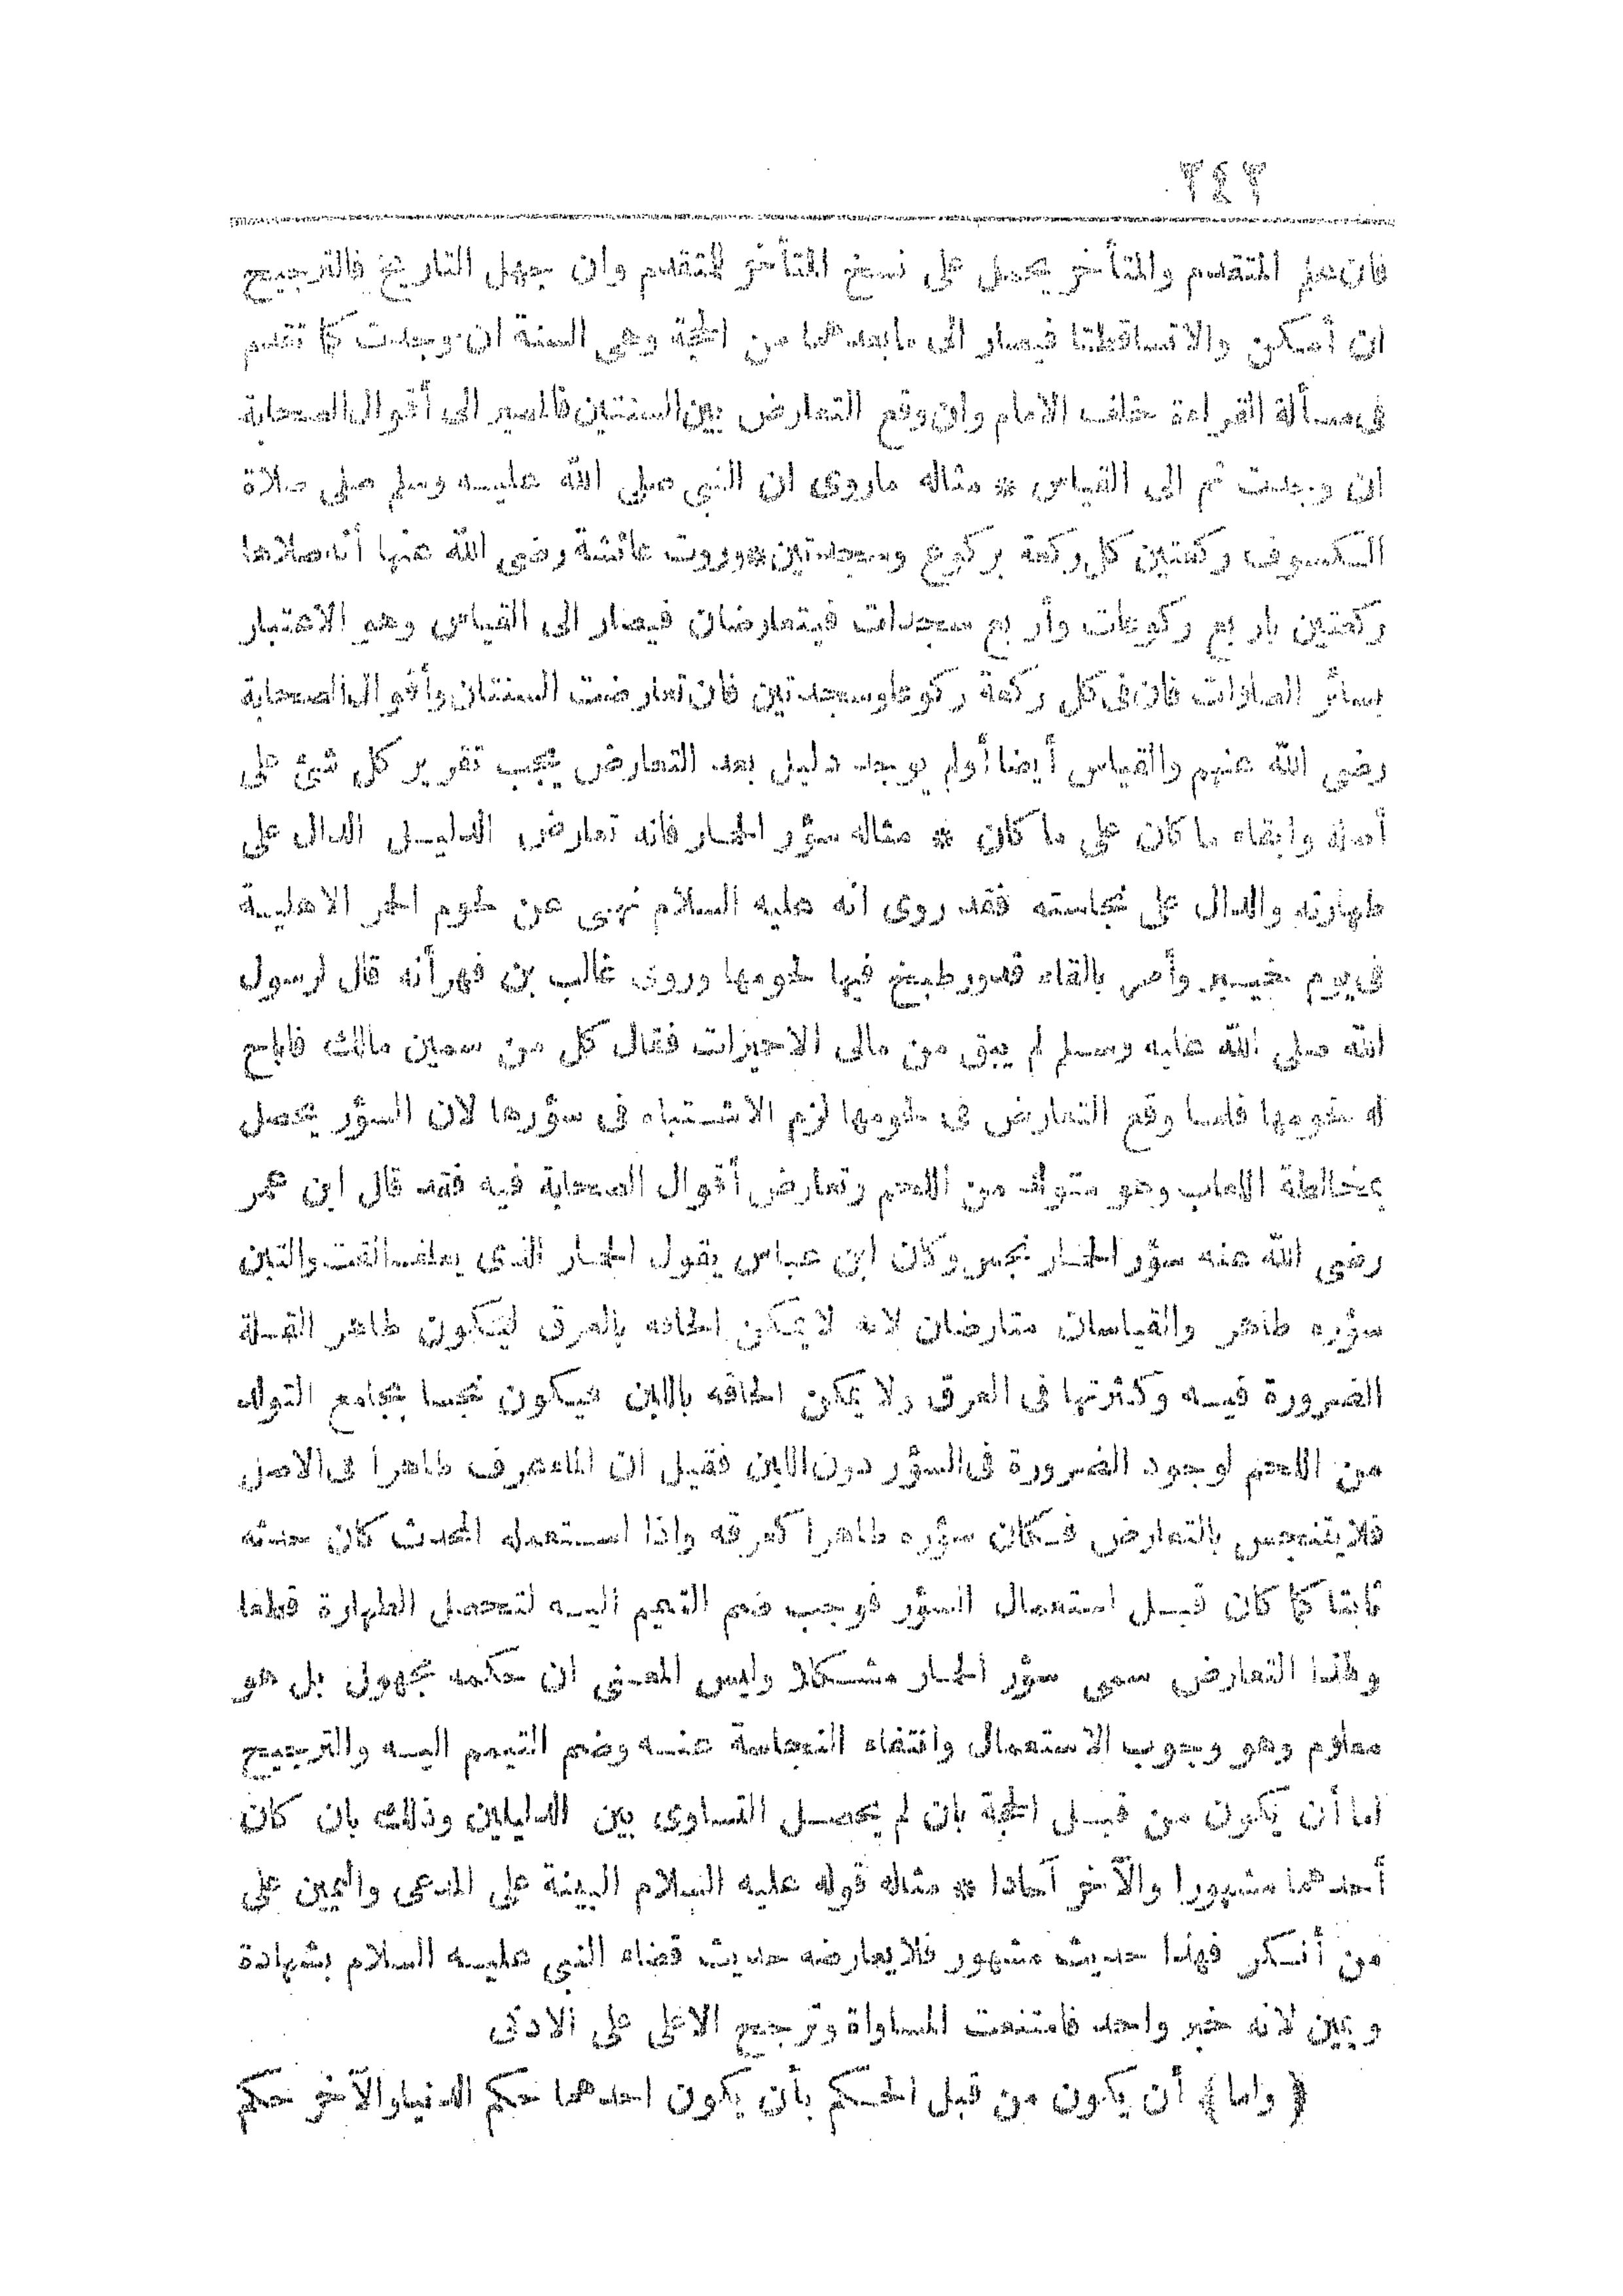 ٢٤٢
فان علم المتقدم والمتأخر يحمل على نسخ المتأخر للمتقدم وان جهل التاريخ فالترجيح
ان أمكن والا تساقطتا فيصار الى ما بعدهما من الحجة وهى السنة ان وجدت كما تقدم
فى مسألة القراءة خلف الامام وان وقع التعارض بين السنتين فالمصير الى أقوال الصحابة
ان وجدت ثم الى القياس * مثاله ما روى ان النبي صلى الله عليه وسلم صلى صلاة
الكسوف ركعتين كل ركعة بركوع وسجدتين * وروت عائشة رضى الله عنها أنه صلاها
ركعتين باربع ركوعات وأربع سجدات فيتعارضان فيصار الى القياس وهو الاعتبار
بسائر الصلوات فان فى كل ركعة ركوعا وسجدتين فان تعارضت السنتان وأقوال الصحابة
رضى الله عنهم والقياس أيضا أو لم يوجد دليل بعد التعارض يجب تقرير كل شئ على
أصله وابقاء ما كان على ما كان * مثاله سؤر الحمار فانه تعارض الدليل الدال على
طهارته والدال على نجاسته فقد روى انه عليه السلام نهى عن لحوم الحمر الاهلية
فى يوم خيبر وأمر بالقاء قدور طبخ فيها لحومها وروى غالب بن فهر أنه قال لرسول
الله صلى الله عليه وسلم لم يبق من مالى الا حميرات فقال كل من سمين مالك فاباح
له لحومها فلما وقع التعارض فى لحومها لزم الاشتباه فى سؤرها لان السؤر يحصل
بمخالطة اللعاب وهو متولد من اللحم وتعارض أقوال الصحابة فيه فقد قال ابن عمر
رضى الله عنه سؤر الحمار نجس وكان ابن عباس يقول الحمار الذى يعلف القت والتبن
سؤره طاهر والقياسان متعارضان لانه لا يمكن الحاقه بالعرق ليكون طاهر القلة
الضرورة فيه وكثرتها فى العرق ولا يمكن الحاقه باللبن فيكون نجسا بجامع التولد
من اللحم لوجود الضرورة فى السؤر دون اللبن فقيل ان الماء عرف طاهرا فى الاصل
فلا يتنجس بالتعارض فكان سؤره طاهرا كعرقه واذا استعمله المحدث كان حدثه
ثابتا كما كان قبل استعمال السؤر فوجب ضم التيمم اليه لتحصل الطهارة قطعا
ولهذا التعارض سمى سؤر الحمار مشكلا وليس المعنى ان حكمه مجهول بل هو
معلوم وهو وجوب الاستعمال وانتفاء النجاسة عنه وضم التيمم اليه والترجيح
اما أن يكون من قبل الحجة بان لم يحصل التساوى بين الدليلين وذلك بان كان
أحدهما مشهورا والآخر آحادا * مثاله قوله عليه السلام البينة على المدعى واليمين على
من أنكر فهذا حديث مشهور فلا يعارضه حديث قضاء النبي عليه السلام بشهادة
ويمين لانه خبر واحد فامتنعت المساواة وترجح الاعلى على الادنى
﴿واما﴾ أن يكون من قبل الحكم بأن يكون احدهما حكم الدنيا والآخر حكم